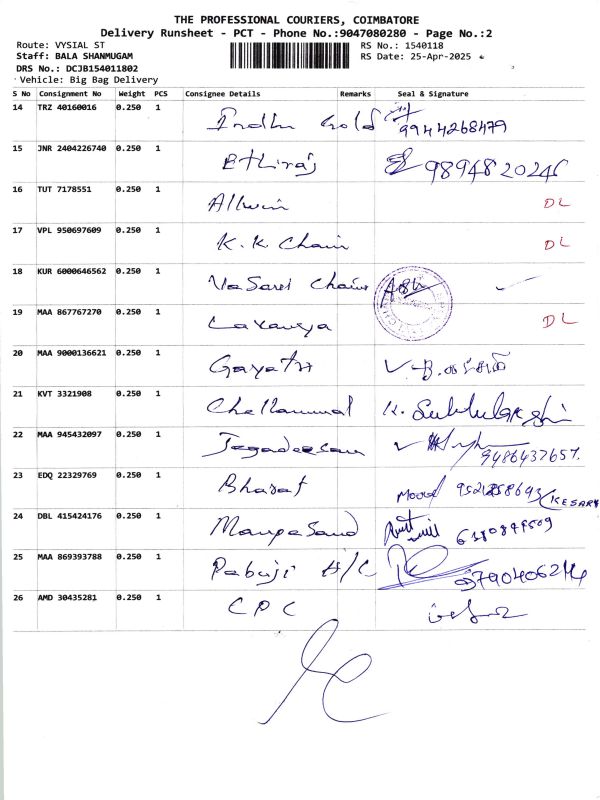 THE PROFESSIONAL COURIERS, COIMBATORE
Delivery Runsheet - PCT - Phone No.:9047080280 - Page No.:2
Route: VYSIAL ST
RS No.: 1540118
Staff: BALA SHANMUGAM
RS Date: 25-Apr-2025
DRS No.: DCJB154011802
Vehicle: Big Bag Delivery
S No Consignment No Weight PCS Consignee Details Remarks Seal & Signature
14 TRZ 40160016 0.250 1 Indhu Gold 9944268479
15 JNR 2404226740 0.250 1 Ethiraj 9894820246
16 TUT 7178551 0.250 1 Allwin DL
17 VPL 950697609 0.250 1 K.K Chain DL
18 KUR 6000646562 0.250 1 Chain
19 MAA 867767270 0.250 1 Lavanya DL
20 MAA 9000136621 0.250 1 Gayatri
21 KVT 3321908 0.250 1 Chellammal K.
22 MAA 945432097 0.250 1 Jagadeesan 9486437657.
23 EDQ 22329769 0.250 1 Bharat KESARY
24 DBL 415424176 0.250 1
25 MAA 869393788 0.250 1 Pabuji H/C
26 AMD 30435281 0.250 1 CPC